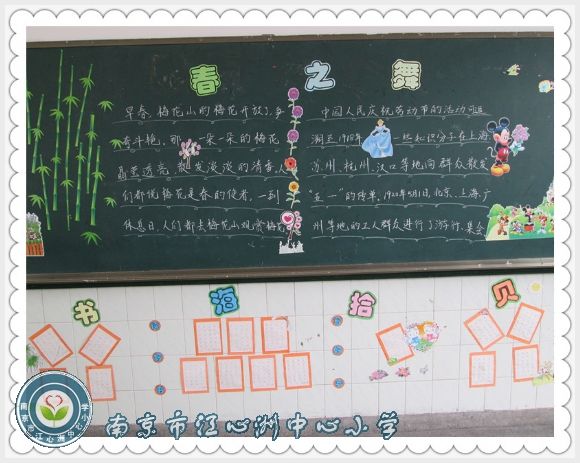 春之舞
早春，梅花山的梅花开放了，争
奇斗艳。那一朵一朵的梅花
晶莹透亮，散发淡淡的清香，人
们都说梅花是春的使者，一到
休息日，人们都去梅花山观赏梅花
中国人民庆祝劳动节的活动可追
溯至1918年 一些知识分子在上海
苏州、杭州、汉口等地向群众散发
"五一"的传单。1920年5月1日，北京、上海、广
州等地的工人群众进行了游行、集会
书海拾贝
南京市江心洲中心小学
南京市江心洲中心小学